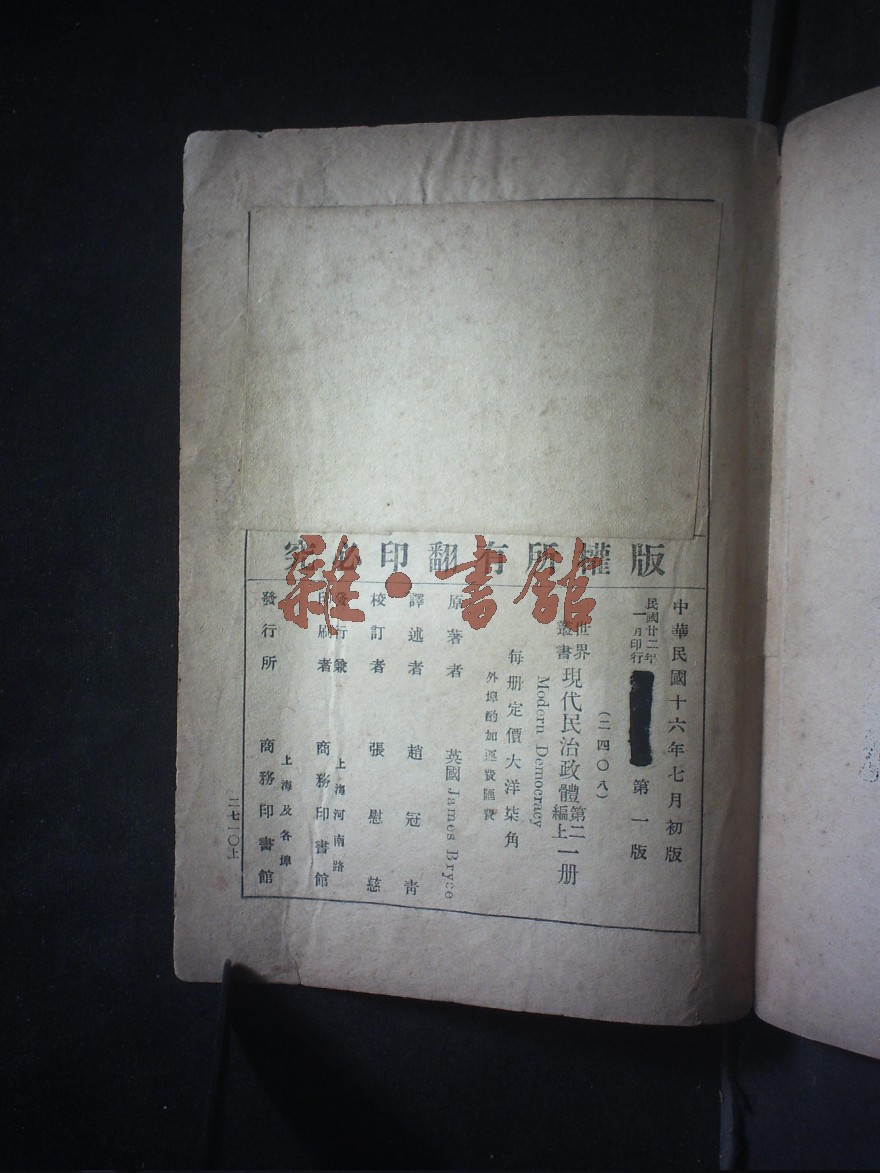 版權所有翻印必究
中華民國十六年七月初版
民國廿二年一月印行
第一版
(二四〇八)
世界叢書
現代民治政體
第二編上
一册
Modern Democracy
每册定價大洋柒角
外埠酌加運費匯費
原著者 英國 James Bryce
譯述者 趙冠青
校訂者 張慰慈
發行兼印刷者 上海河南路 商務印書館
發行所 上海及各埠 商務印書館
二七一〇上
雜·書館